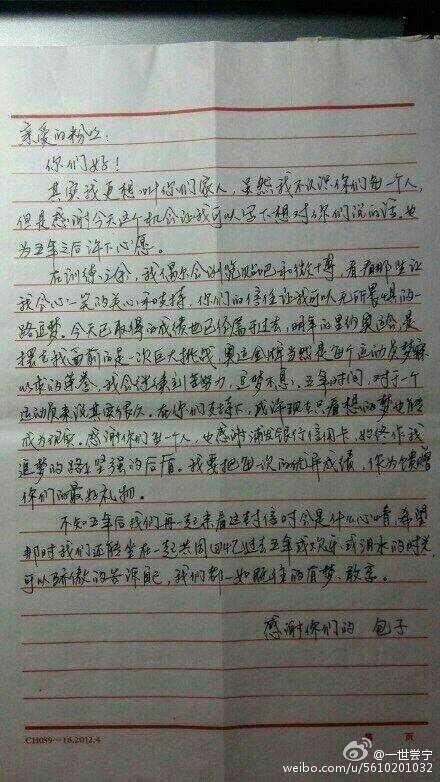 亲爱的粉丝：
你们好！
其实我更想叫你们家人，虽然我不认识你们每一个人，
但是感谢今天这个机会让我可以写下想对你们说的话，也
为五年之后许下心愿。
在训练之余，我偶尔会浏览贴吧和微博，看看那些让
我会心一笑的关心和支持，你们的信任让我可以无所畏惧的一
路追梦。今天已取得的成绩也已经属于过去，明年的里约奥运会是
摆在我面前的是一次巨大挑战，奥运金牌当然是每个运动员梦寐
以求的荣誉，我会继续刻苦努力，追梦不息。五年时间，对于一个
运动员来说其实很久。在你们支持下，或许现在只看想的梦也能
成为现实。感谢你们每一个人，也感谢浦发银行信用卡，始终作我
追梦的路上坚强的后盾。我要把每一次的优异成绩，作为馈赠
你们的最好礼物。
不知五年后我们再一起来看这封信时会是什么心情，希望
那时我们还能坐在一起共同回忆过去五年或欢乐或泪水的时光，
可以骄傲的告诉自己，我们都一如既往的有梦、敢享。
感谢你们的 包子
CH089—16.2012.4
第 页
@一世尝宁
weibo.com/u/5610201032